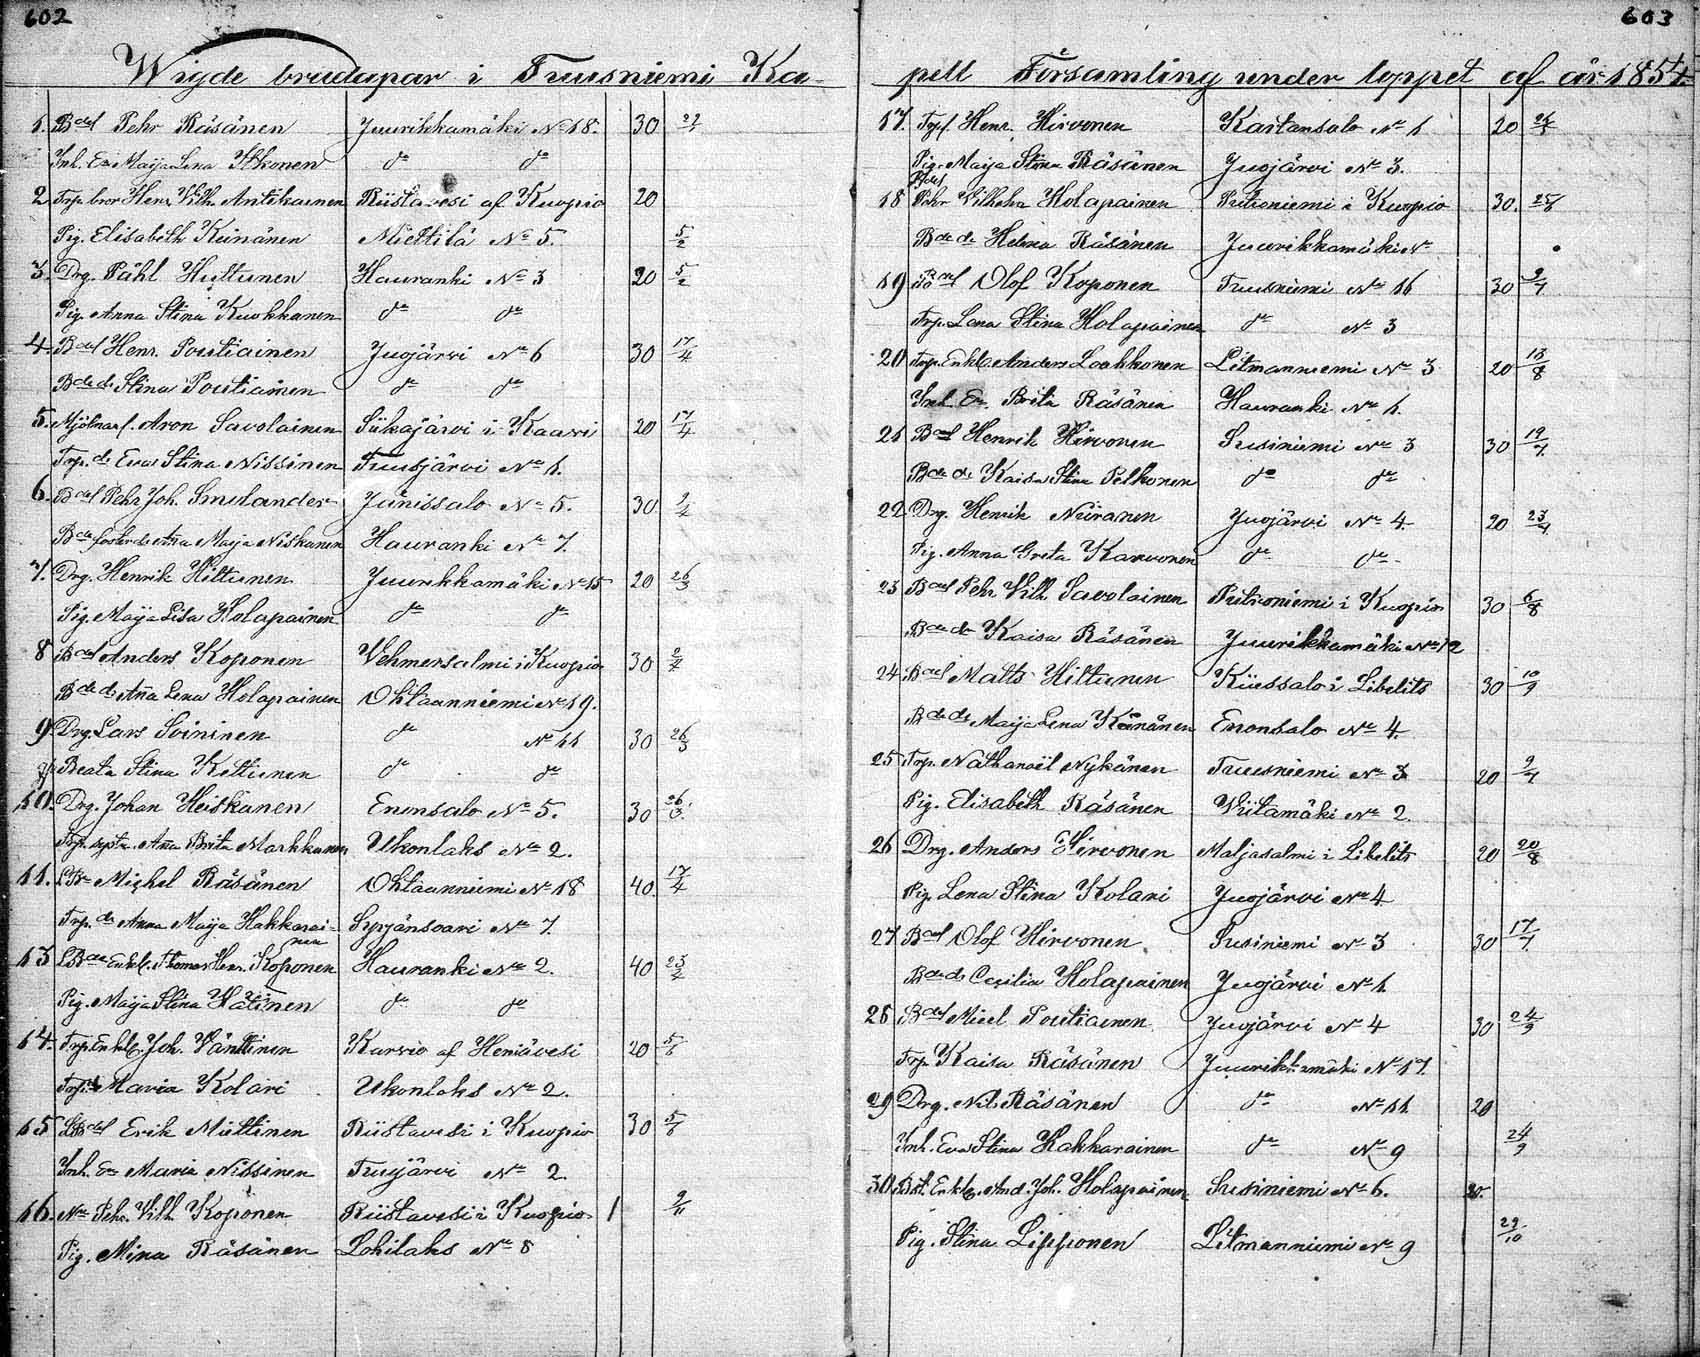 602
Wigde brudapar i Tuusniemi Ka-
1. Bdes Pehr Räsänen Juurikkamäki No 18. 30 22/1
Inh. Er Maija Lena Itkonen do do
2 Trp. bror Henr. Vilh. Antikainen Riistavesi af Kuopio 20
Pig. Elisabeth Keinänen Miettilä No 5. 5/2
3. Drg. Påhl Huttunen Hauranki No 3 20 5/2
Pig. Anna Stina Kuokkanen do do
4. Bdes Henr. Poutiainen Juojärwi No 6 30 17/4
Bde dr Stina Poutiainen do do
5. Mjölnarf. Aron Savolainen Siikajärvi i Kaavi 20 17/4
Trp. dr Eva Stina Nissinen Tuusjärvi No 1.
6. Bdes Pehr Joh. Smulander Jänissalo No 5. 30 2/4
Bde foster dr Aña Maija Niskanen Hauranki No 7.
7. Drg. Henrik Hiltunen Juurikkamäki No 15 20 26/3
Pig. Maija Lisa Holapainen do do
8 Bdes Anders Koponen Vehmersalmi i Kuopio 30 2/4
Bde dr Aña Lena Holapainen Ohtaanniemi No 19.
9 Drg. Lars Soininen do No 11 30 26/3
Pig. Beata Stina Kettunen do do
10. Drg. Johan Heiskanen Enonsalo No 5. 30 26/3
Trp. syst. Aña Brita Markkanen Ukonlaks No 2.
11. LBde Michel Räsänen Ohtaanniemi No 18 40. 17/4
Trp. dr Anna Maija Hakkarai-nen Syrjänsaari No 7.
13 LBde Enkl. Thomas Henr. Koponen Hauranki No 2. 40 23/4
Pig. Maija Stina Hätinen do do
14. Trp. Enkl. Joh. Vänttinen Karvio af Heniävesi 20 5/6
Trp. dr Maria Kolari Ukonlaks No 2.
15 LBdes Erik Miettinen Riistavesi i Kuopio 30 5/6
Inh. dr Maria Nissinen Tuusjärvi No 2.
16. Nde Pehr. Vilh. Koponen Riistavesi i Kuopio 1 9/11
Pig. Mina Räsänen Lohilaks No 8
603
pell Församling under loppet af år 1854.
17. Trp. Henr. Hirvonen Kartansalo No 1 20 26/3
Pig. Maija Stina Räsänen Juojärvi No 3.
18 Bdes Pehr Vilhelm Holapainen Putroniemi i Kuopio 30. 25/6
Bde dr Helena Räsänen Juurikkamäki No
19 Bdes Olof Koponen Tuusniemi No 11 30 9/7
Trp. Lena Stina Holapainen do No 3
20 Trp. Enkl. Anders Laukkonen Litmanniemi No 3 20 13/8
Inh. Er. Brita Räsänen Hauranki No 1.
21 Bdes Henrik Hirvonen Susiniemi No 3 30 19/4
Bde dr Kaisa Stina Pelkonen do do
22 Drg. Henrik Niiranen Juojärvi No 4 20 23/4
Pig. Anna Greta Karvonen do do
23 Bdes Pehr Vilh. Savolainen Putroniemi i Kuopio 30 6/8
Bde dr Kaisa Räsänen Juurikkamäki No 12
24 Bdes Matts Hiltunen Kiiessalo i Libelits 30 10/9
Bde dr Maija Lena Keinänen Enonsalo No 4.
25 Trp. Nathanaël Nykänen Tuusniemi No 3 20 9/7
Pig. Elisabeth Räsänen Viitamäki No 2.
26 Drg. Anders Hirvonen Maljasalmi i Libelits 20 20/8
Pig. Lena Stina Kolari Juojärvi No 4
27 Bdes Olof Hirvonen Susiniemi No 3 30 17/7
Bde dr Cecilia Holapainen Juojärvi No 1
28 Bdes Micel Poutiainen Juojärvi No 4 30 24/9
Trp. Kaisa Räsänen Juurikkamäki No 17
29 Drg. Nils Räsänen do No 11 20
Inh. Eva Stina Hakkarainen do No 9 24/9
30 Bst. Enkl. And. Joh. Holapainen Susiniemi No 6. 20.
Pig. Stina Lipponen Litmanniemi No 9 29/10